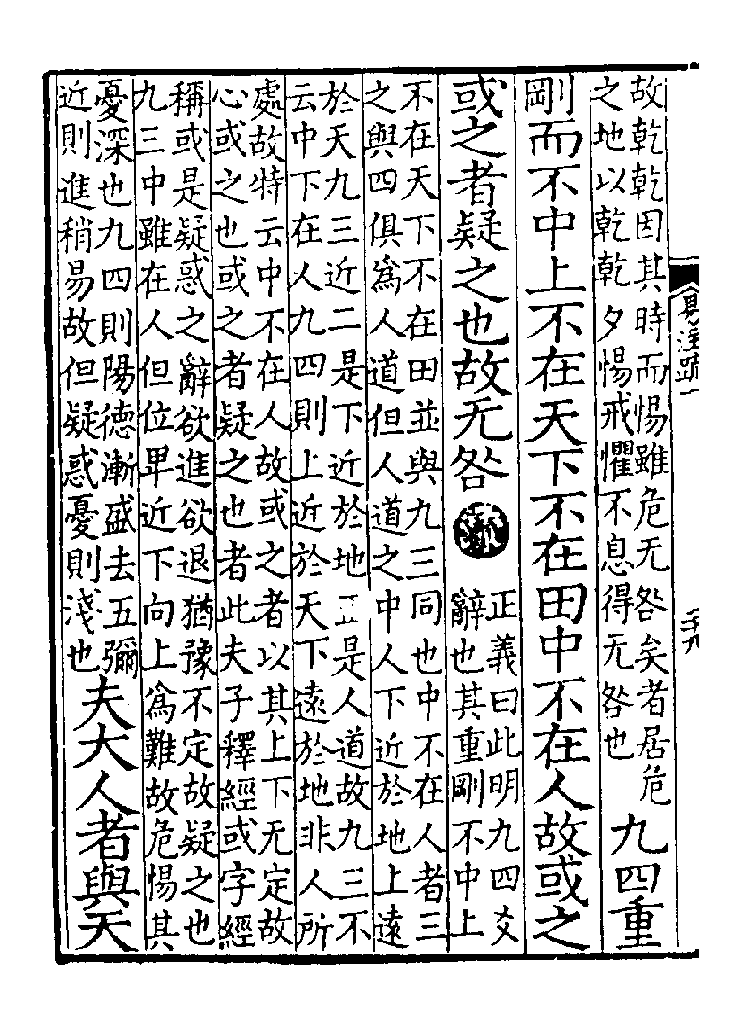 故乾乾因其時而惕雖危无咎矣者居危
之地以乾乾夕惕戒懼不息得无咎也
九四重
剛而不中上不在天下不在田中不在人故或之
或之者疑之也故无咎 疏
正義曰此明九四爻
辭也其重剛不中上
不在天下不在田並與九三同也中不在人者三
之與四俱爲人道但人道之中人下近於地上遠
於天九三近二是下近於地正是人道故九三不
云中下在人九四則上近於天下遠於地非人所
處故特云中不在人故或之者以其上下无定故
心或之也或之者疑之也者此夫子釋經或字經
稱或是疑惑之辭欲進欲退猶豫不定故疑之也
九三中雖在人但位卑近下向上爲難故危惕其
憂深也九四則陽德漸盛去五彌
近則進稍易故但疑惑憂則淺也
夫大人者與天